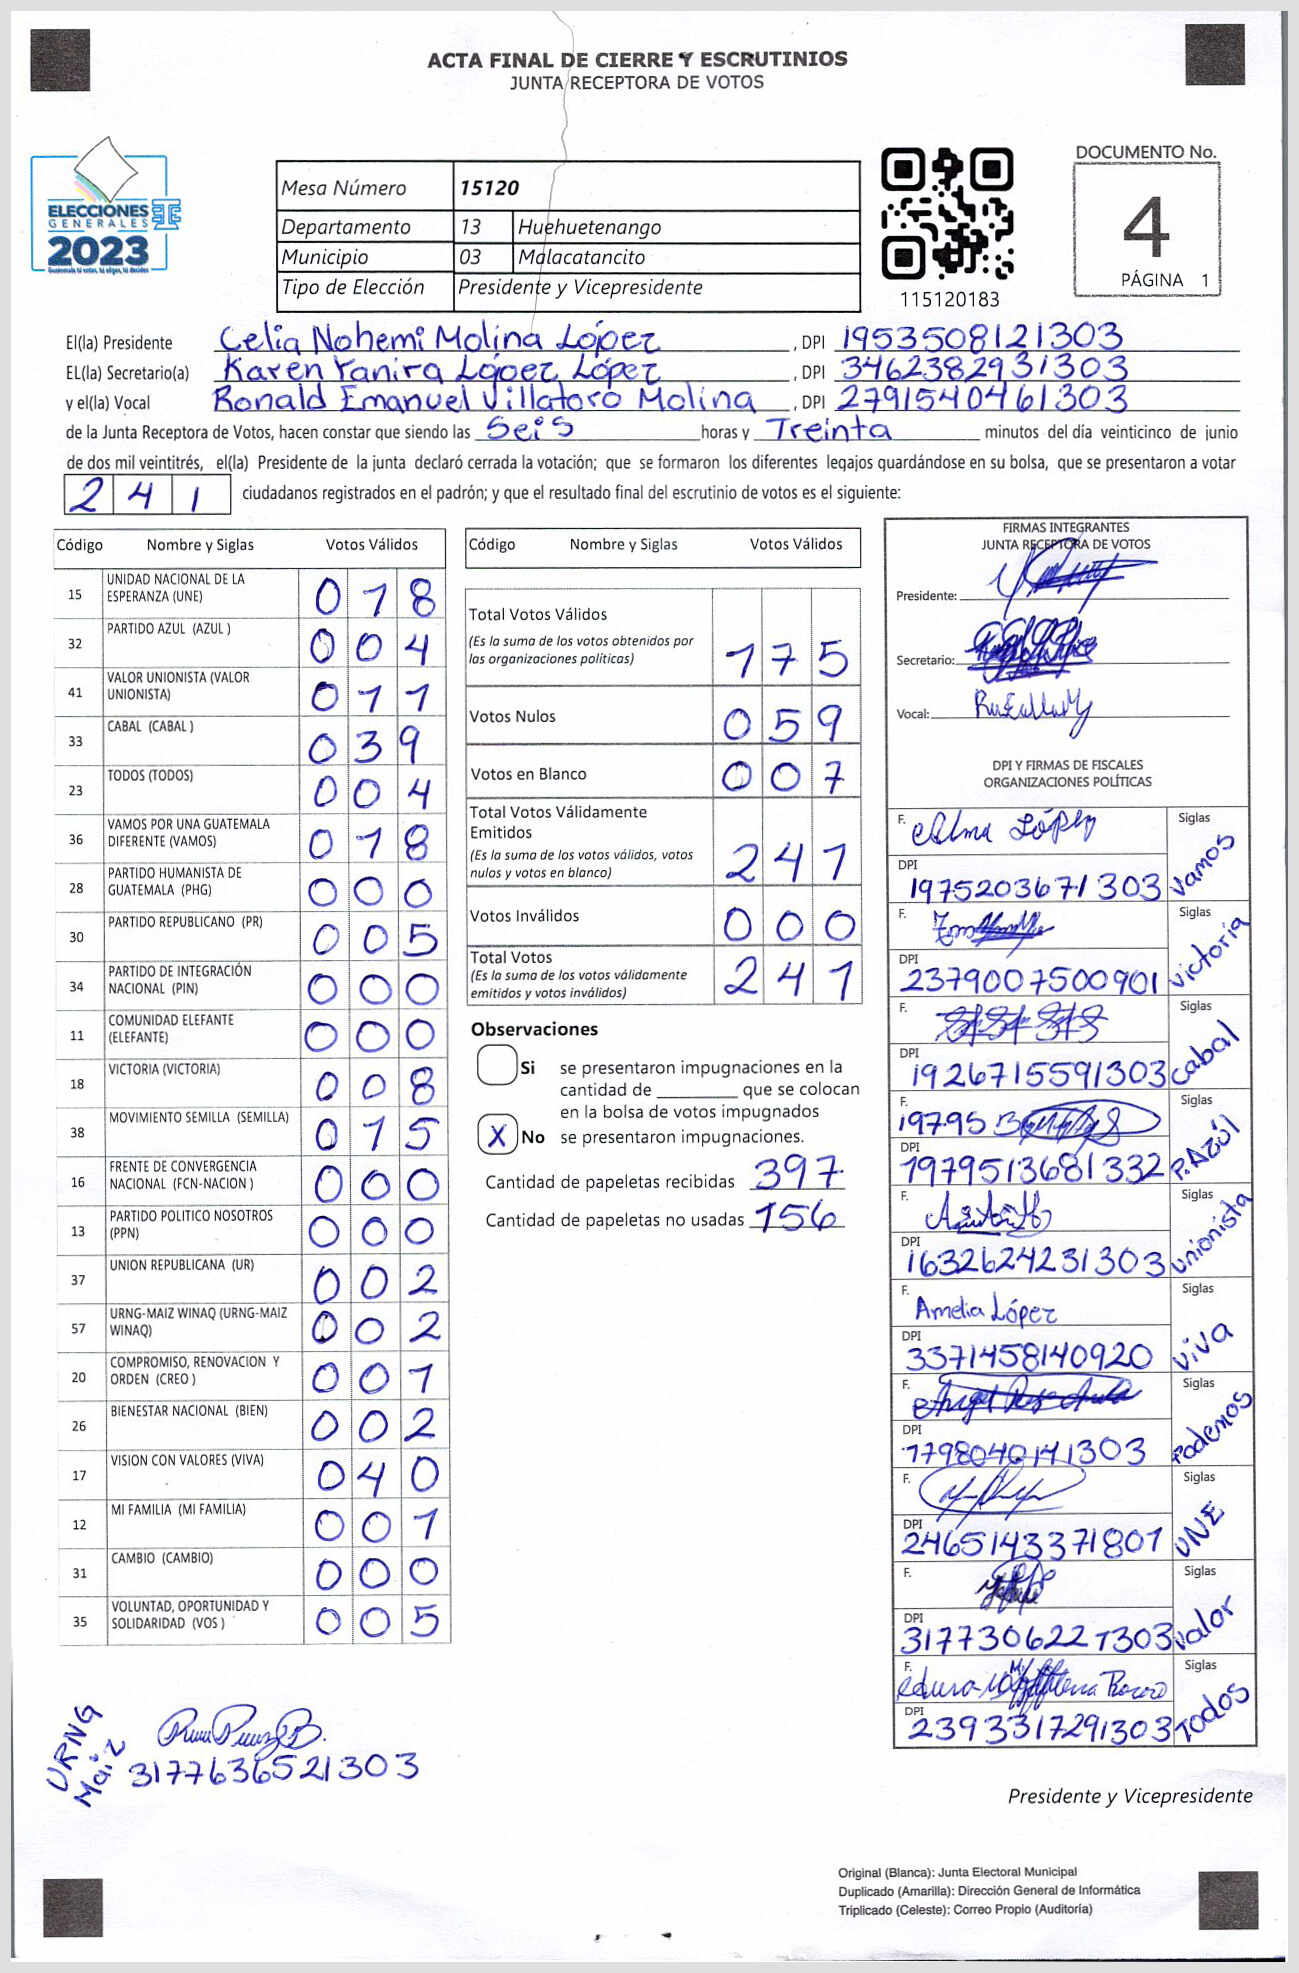 ACTA FINAL DE CIERRE Y ESCRUTINIOS
JUNTA RECEPTORA DE VOTOS
ELECCIONES
GENERALES
2023
Mesa Número 15120
Departamento 13 Huehuetenango
Municipio 03 Malacatancito
Tipo de Elección Presidente y Vicepresidente
115120183
DOCUMENTO No.
4
PÁGINA 1
El(la) Presidente Celia Nohemi Molina López, DPI 1953508121303
EL(la) Secretario(a) Karen Yanira López López, DPI 3462382931303
y el(la) Vocal Ronald Emanuel Villatoro Molina, DPI 2791540461303
de la Junta Receptora de Votos, hacen constar que siendo las Seis horas y Treinta minutos del día veinticinco de junio
de dos mil veintitrés, el(la) Presidente de la junta declaró cerrada la votación; que se formaron los diferentes legajos quardándose en su bolsa, que se presentaron a votar
241 ciudadanos registrados en el padrón; y que el resultado final del escrutinio de votos es el siguiente:
Código Nombre y Siglas Votos Válidos
15 UNIDAD NACIONAL DE LA ESPERANZA (UNE) 018
32 PARTIDO AZUL (AZUL ) 004
41 VALOR UNIONISTA (VALOR UNIONISTA) 011
33 CABAL (CABAL ) 039
23 TODOS (TODOS) 004
36 VAMOS POR UNA GUATEMALA DIFERENTE (VAMOS) 018
28 PARTIDO HUMANISTA DE GUATEMALA (PHG) 000
30 PARTIDO REPUBLICANO (PR) 005
34 PARTIDO DE INTEGRACIÓN NACIONAL (PIN) 000
11 COMUNIDAD ELEFANTE (ELEFANTE) 000
18 VICTORIA (VICTORIA) 008
38 MOVIMIENTO SEMILLA (SEMILLA) 015
16 FRENTE DE CONVERGENCIA NACIONAL (FCN-NACION ) 000
13 PARTIDO POLITICO NOSOTROS (PPN) 000
37 UNION REPUBLICANA (UR) 002
57 URNG-MAIZ WINAQ (URNG-MAIZ WINAQ) 002
20 COMPROMISO, RENOVACION Y ORDEN (CREO ) 001
26 BIENESTAR NACIONAL (BIEN) 002
17 VISION CON VALORES (VIVA) 040
12 MI FAMILIA (MI FAMILIA) 001
31 CAMBIO (CAMBIO) 000
35 VOLUNTAD, OPORTUNIDAD Y SOLIDARIDAD (VOS ) 005
URNG Maiz
3177636521303
Código Nombre y Siglas Votos Válidos
Total Votos Válidos
(Es la suma de los votos obtenidos por las organizaciones políticas) 175
Votos Nulos 059
Votos en Blanco 007
Total Votos Válidamente Emitidos
(Es la suma de los votos válidos, votos nulos y votos en blanco) 241
Votos Inválidos 000
Total Votos
(Es la suma de los votos válidamente emitidos y votos inválidos) 241
Observaciones
Si se presentaron impugnaciones en la
cantidad de ________ que se colocan
en la bolsa de votos impugnados
X No se presentaron impugnaciones.
Cantidad de papeletas recibidas 397
Cantidad de papeletas no usadas 156
FIRMAS INTEGRANTES
JUNTA RECEPTORA DE VOTOS
Presidente:
Secretario:
Vocal:
DPI Y FIRMAS DE FISCALES
ORGANIZACIONES POLÍTICAS
F. Alma López Siglas Vamos
DPI 1975203671303
F. Siglas Victoria
DPI 2379007500901
F. Siglas Cabal
DPI 1926715591303
F. 19795 Siglas P. Azúl
DPI 1979513681332
F. Siglas Unionista
DPI 1632624231303
F. Amelia López Siglas Viva
DPI 3371458140920
F. Siglas Podemos
DPI 1798040141303
F. Siglas UNE
DPI 2465143371801
F. Siglas Valor
DPI 3177306221303
F. Siglas Todos
DPI 2393317291303
Presidente y Vicepresidente
Original (Blanca): Junta Electoral Municipal
Duplicado (Amarilla): Dirección General de Informática
Triplicado (Celeste): Correo Propio (Auditoría)